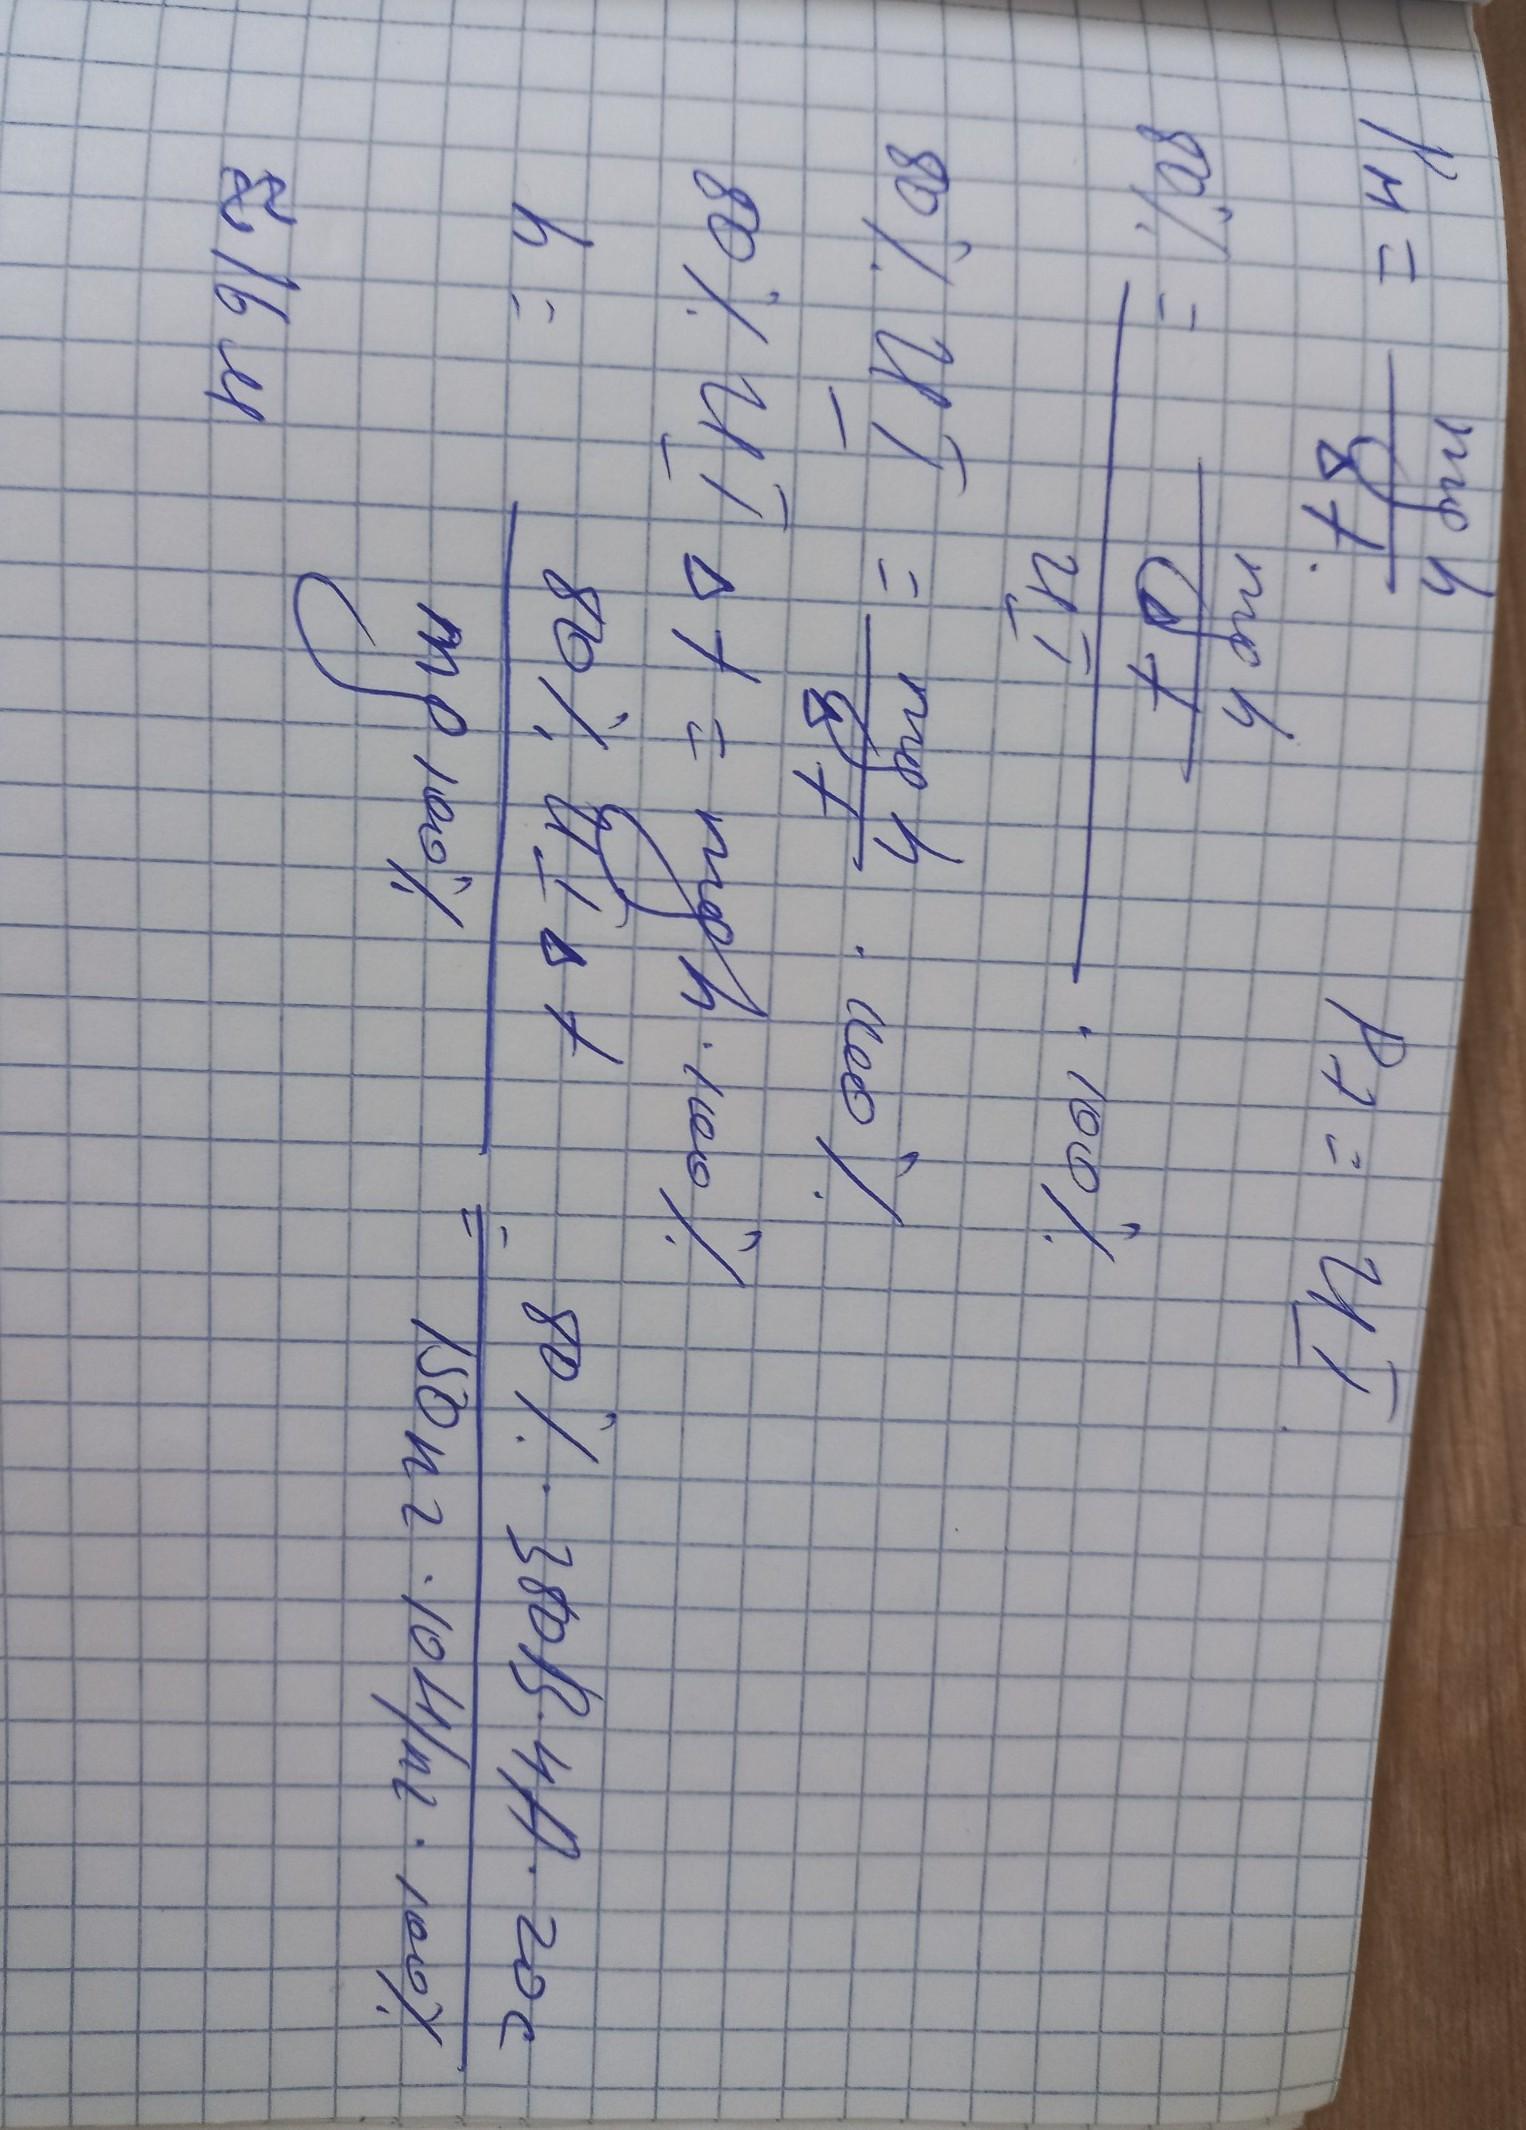 Pп = mgh / Δt . P1 = UI
80% = (mgh / Δt) / UI · 100%
80% UI = mgh / Δt · 100%
80% UI Δt = mgh · 100%
h = 80% UI Δt / mg 100% = 80% · 380В · 4А · 20с / 150кг · 10Н/кг · 100%
≈ 16 м